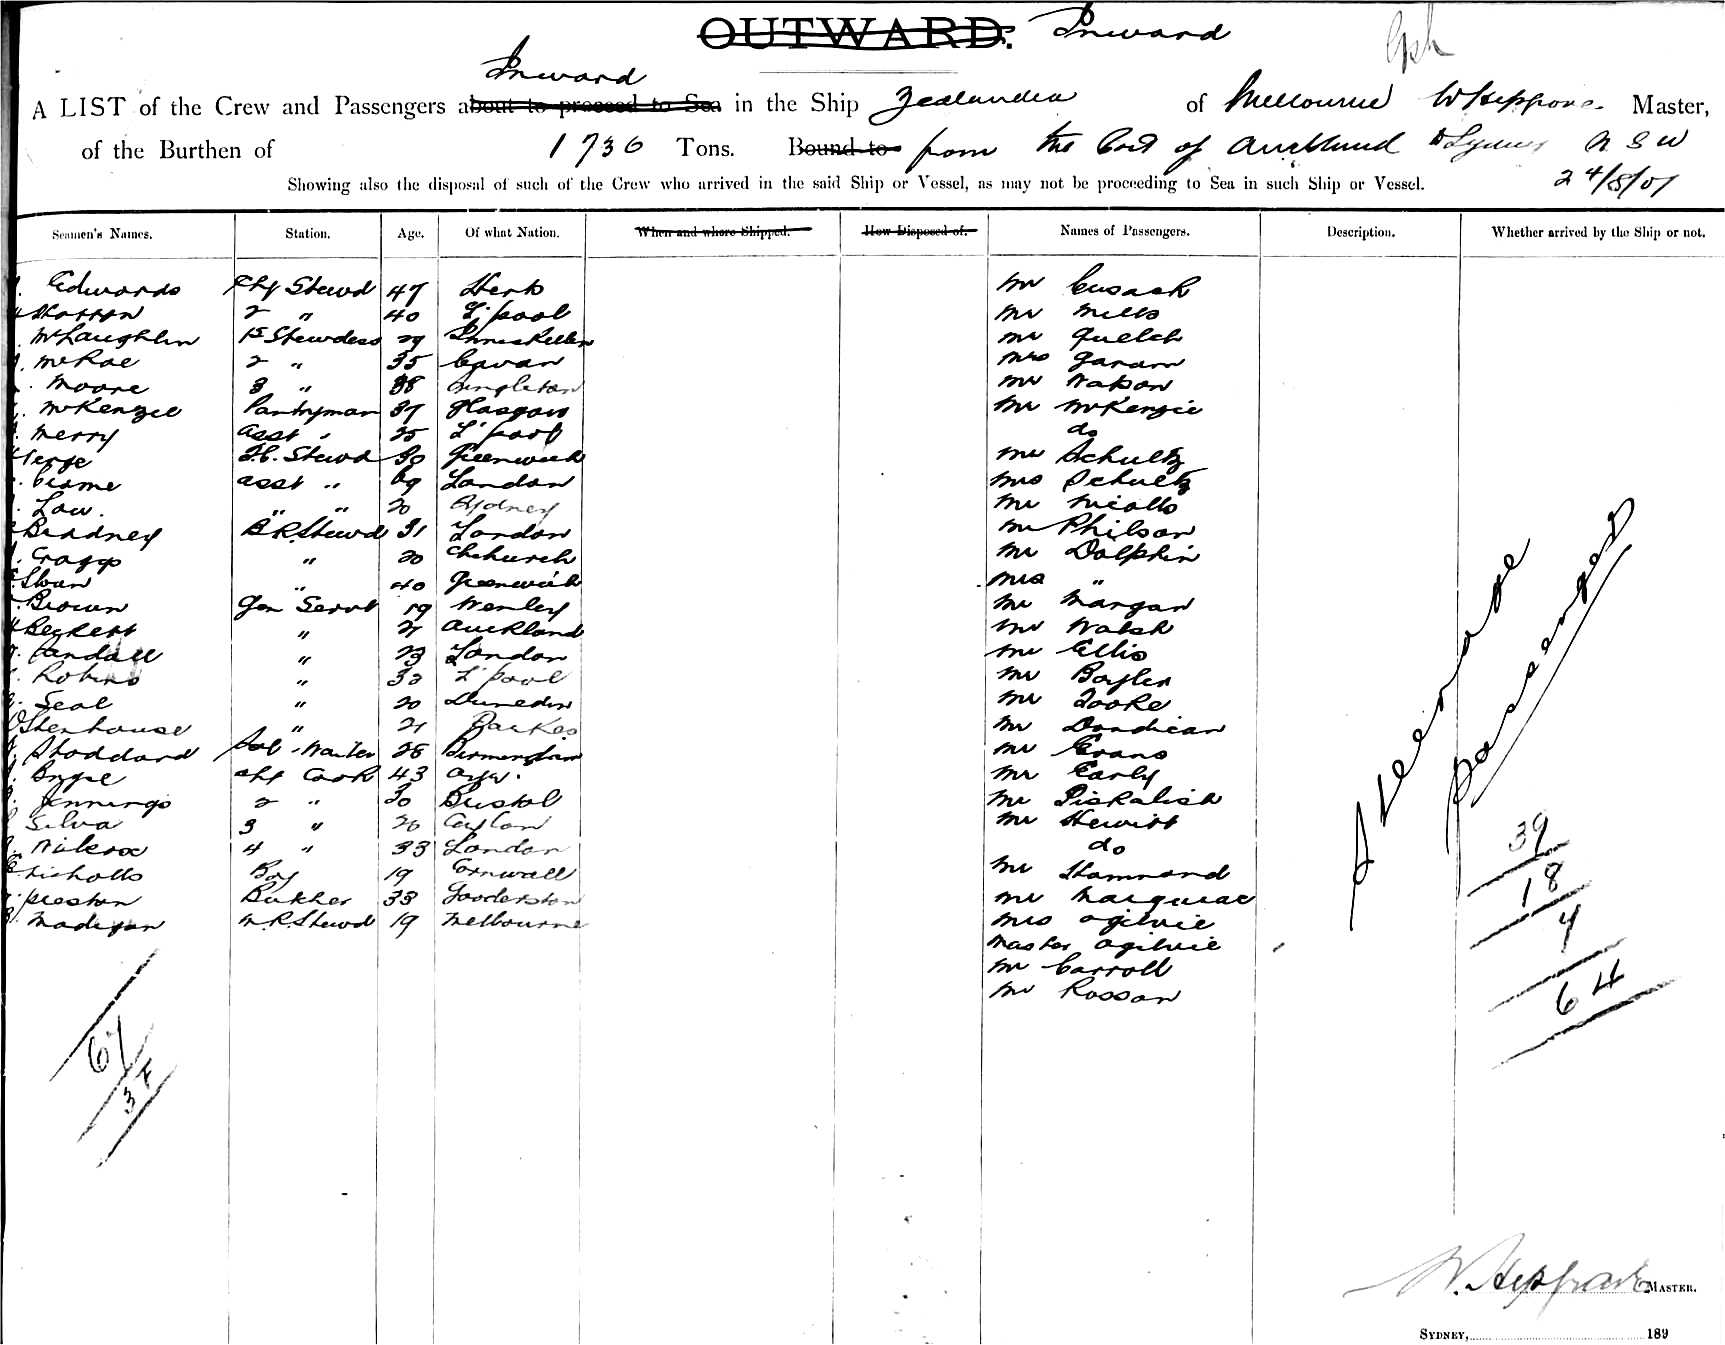 OUTWARD. Inward
Inward
A LIST of the Crew and Passengers about to proceed to Sea in the Ship Zealandia of Melbourne W Hepgrave Master,
of the Burthen of 1730 Tons. Bound to from the Port of Auckland to Sydney N S W
Showing also the disposal of such of the Crew who arrived in the said Ship or Vessel, as may not be proceeding to Sea in such Ship or Vessel. 24/8/01
Seamen's Names. Station. Age. Of what Nation. When and where Shipped. How Disposed of. Names of Passengers. Description. Whether arrived by the Ship or not.
Edwards Chf Stewd 47 Herts Mr Cusack
2 " 40 L'pool Mr Mills
McLaughlin 1st Stewdess 29 Inniskillen Mr Quelch
McRae 2 " 35 Cavan Mrs
Moore 3 " 38 Singleton Mr Watson
McKenzie Pantryman 37 Glasgow Mr McKenzie
Merry Asst " 25 L'pool do
F.C. Stewd 30 Greenwich Mr Schultz
Asst " 69 London Mrs Schultz
Law. " " 20 Sydney Mr Nicolls
Bradney B.R. Stewd 31 London Mr Philson
Cragg " 20 Chchurch Mr Dolphin
Swan " 40 Greenwich Mrs "
Brown Gen Servt 19 Wenley Mr Morgan
Beckett " 21 Auckland Mr Walsh
Randall " 23 London Mr Ellis
Robins " 32 L'pool Mr Bayler
Seal " 20 Dunedin Mr Tooke
Stenhouse " 21 Parkes Mr Dondican
Stoddard Sal. Waiter 28 Birmingham Mr Evans
Boyle Chf Cook 43 Ayr. Mr Early
Jennings 2 " 30 Bristol Mr
Silva 3 " 26 Ceylon Mr Hewitt
Wilcox 4 " 33 London do
Nicholls Boy 19 Cornwall Mr Hammond
Preston Butcher 33 Mr
Madigan M.R. Stewd 19 Melbourne Mrs Ogilvie
Master Ogilvie
Mr Carroll
Mr Rosson
Steerage
passenger
39
18
7
64
67
34
W. Hepgrave MASTER.
SYDNEY, 189